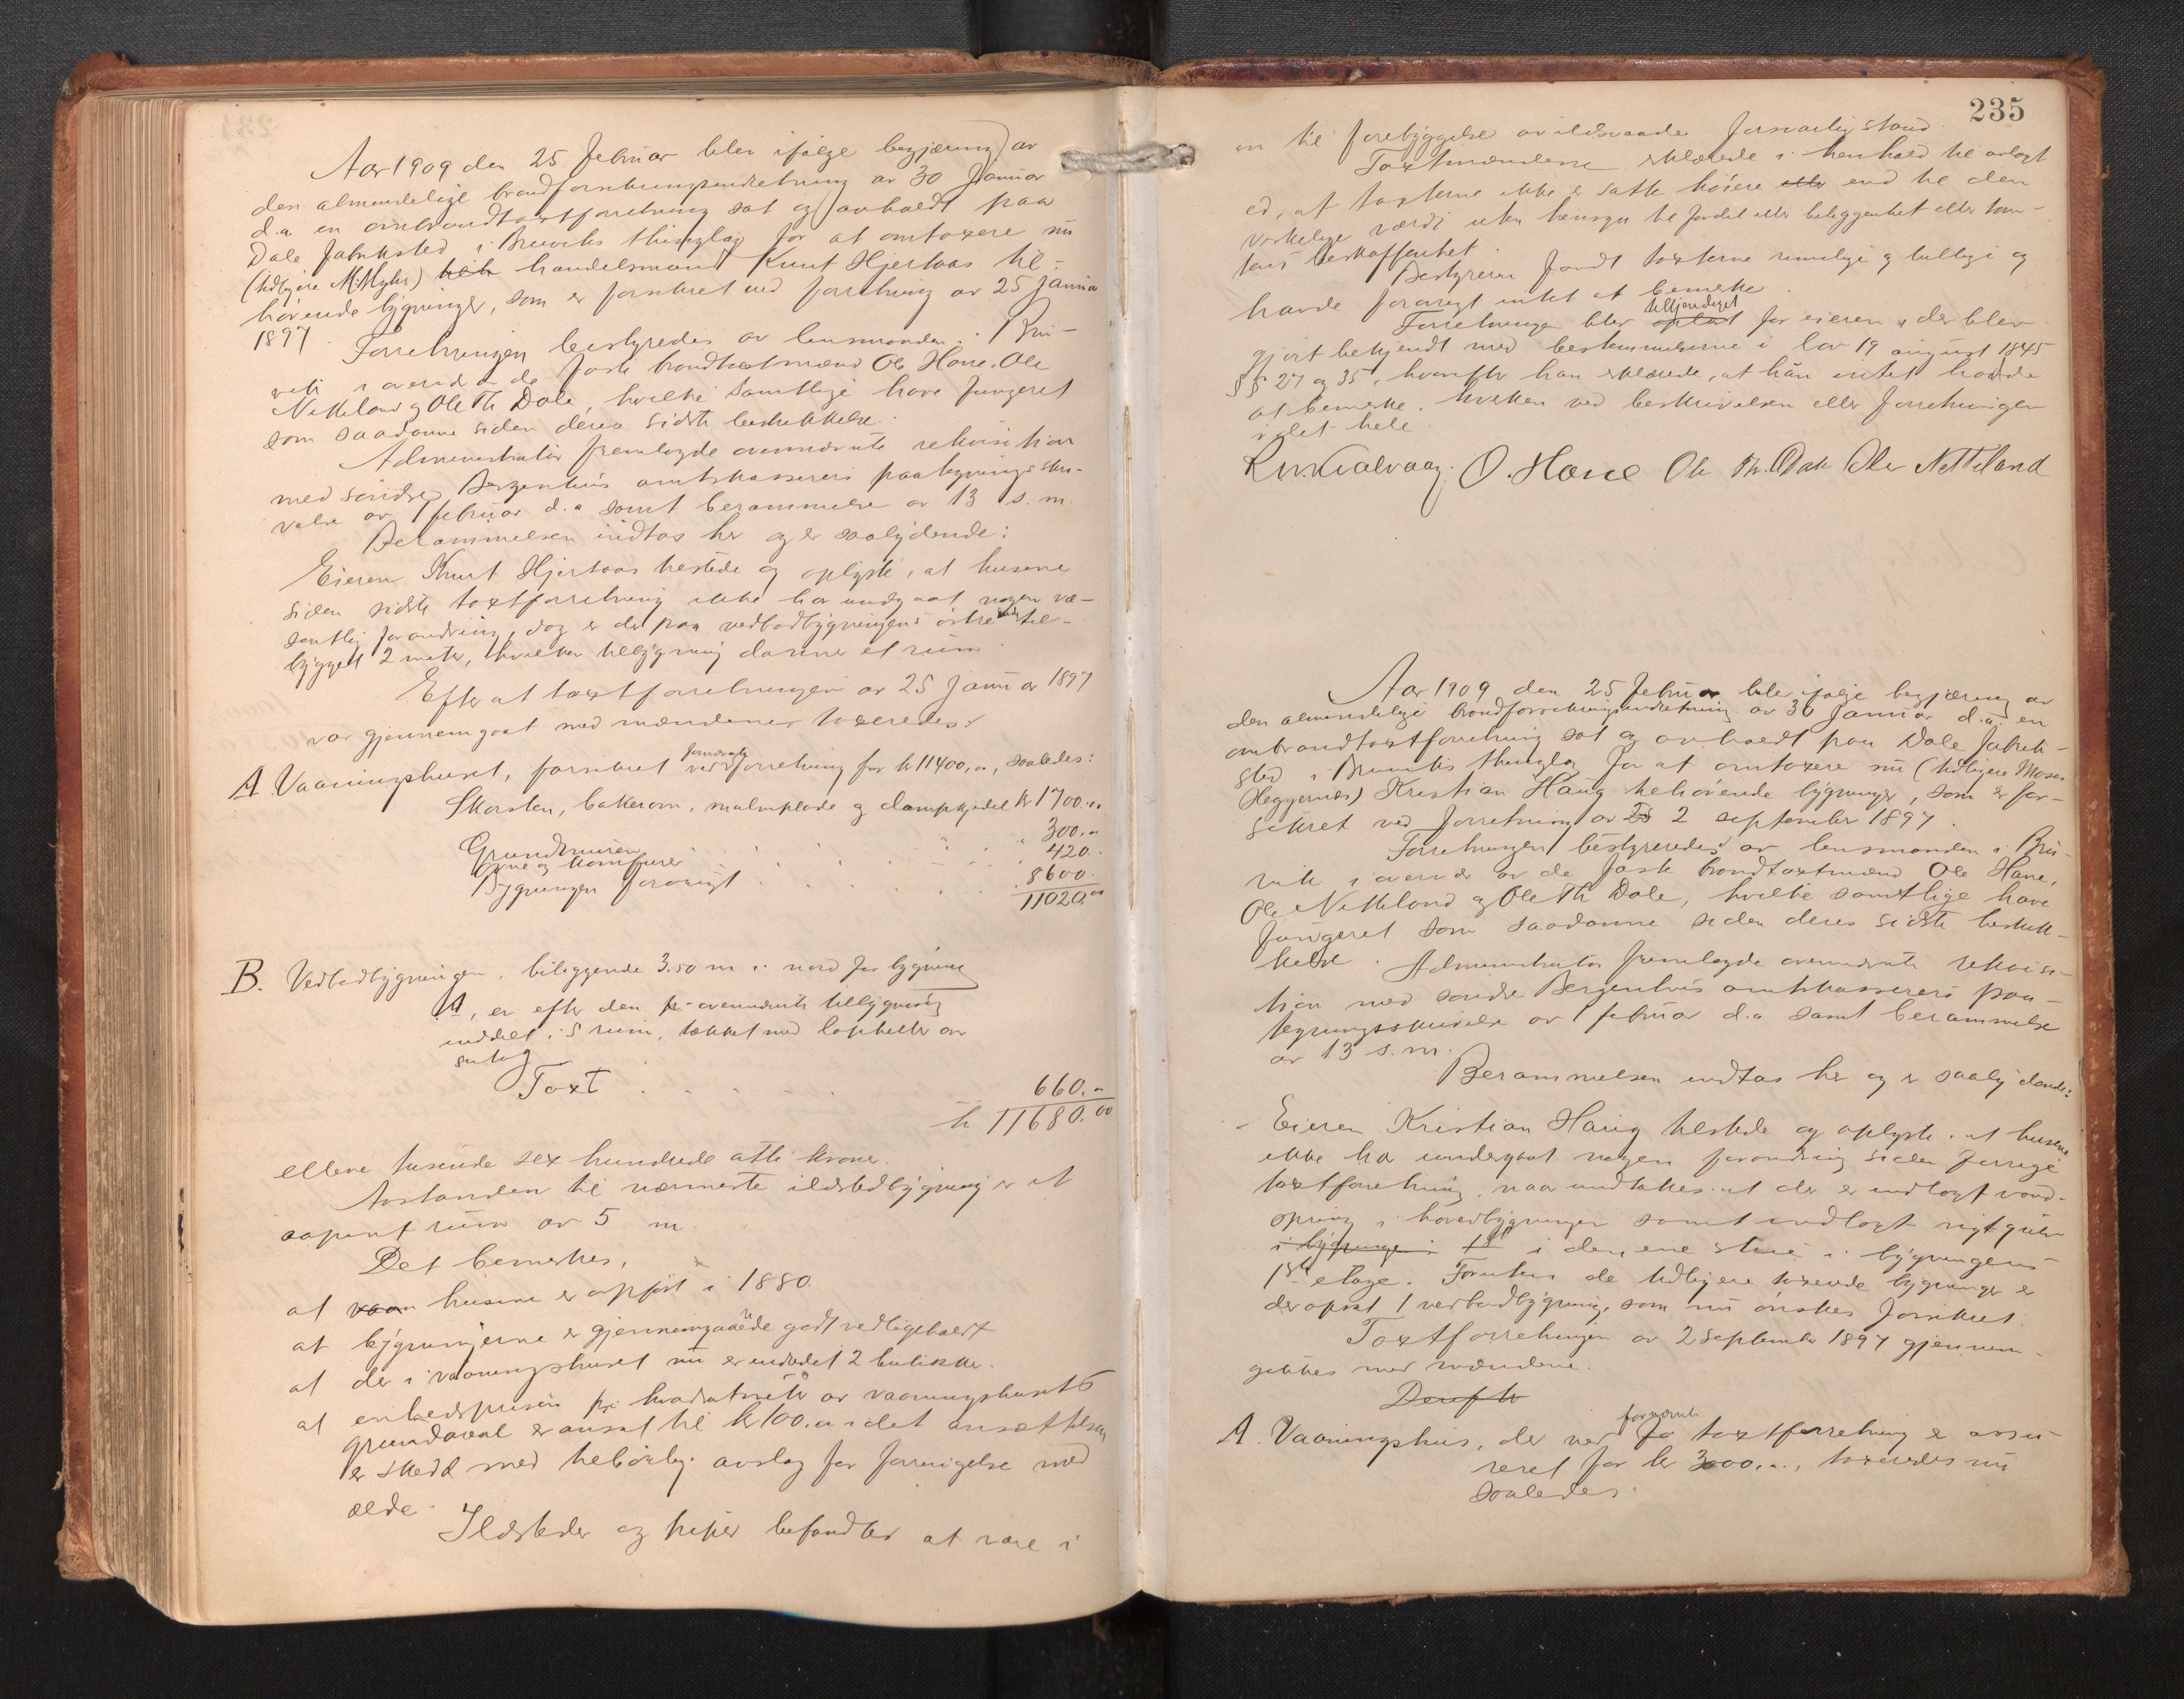 Aar 1909 den 25 Februar blev ifølge begjæring av
den almindelige brandforsikringsindretning av 30 Januar
d.a. en ombrandtaxtforretning sat og avholdt paa
Dale Fabriksted i Bruviks thinglag for at omtaxere nu
(tidligere M. Myhr) handelsmand Knut Hjertaas til-
hørende bygninger, som er forsikret ved forretning av 25 Januar
1897.
Forretningen bestyredes av lensmanden i Bru-
vik i overvær av de faste brandtaxtmænd Ole Hane, Ole
Netteland og Ole Th. Dale, hvilke samtlige have fungeret
som saadanne siden deres sidste beskikkelse.
Administrator fremlagde ovennævnte rekvisition
med søndre Bergenhus amtskasserers paategningsskri-
velse av 1 februar d.a. samt berammelse av 13 s.m.
Berammelsen indtas her og er saalydende:
Eieren Knut Hjertaas tilstede og oplyste, at husene
siden sidste taxtforretning ikke har undgaat nogen væ-
sentlig forandring, dog er der paa vedbodbygningens østre ende til-
bygget 2 meter, hvilken tilbygning danner et rum.
Efter at taxtforretningen av 25 Januar 1897
var gjennemgaat med mændene taxeredes:
A. Vaaningshuset, forsikret ved fornævnte forretning for kr 11400,00, saaledes:
Skorsten, bakerovn, malmplade og dampkjedel kr 1700.00
Grundmuren . . . . . " 300.00
Ovne og komfurer . . . . " 420.
Bygningen forøvrigt . . . . . " 8600.
11020,00
B. Vedbodbygningen, beliggende 3.50 m i nord for bygning
A, er efter den ovennævnte tilbygning
inddelt i 5 rum, tækket med laphelle over
sutag
Taxt . . . . . 660.00
kr 11680.00
elleve tusinde sex hundrede atti kroner.
Avstanden til nærmeste ildstedbygning er et
aapent rum av 5 m.
Det bemerkes,
at vaan husene er opført i 1880.
at bygningerne er gjennemgaaende godt vedligeholdt
at der i vaaningshuset nu er indredet 2 butikker.
at enhedsprisen pr. kvadratmeter av vaaningshusets
grundareal er ansat til kr 100.00 idet ansættelsen
er skedd med tilbørlig avslag for forringelse ved
ælde.
Ildsteder og piper befandtes at være i
235
en til forebyggelse av ildsvaade forsvarlig stand.
Taxtmændene erklærede i henhold til avlagt
ed, at taxterne ikke er satte høiere eller end til den
virkelige værdi uten hensyn til fordel eller beliggenhet eller tom-
tens beskaffenhet.
Bestyreren fandt taxterne rimelige og billige og
havde forøvrigt intet at bemerke.
Forretningen blev oplæst tilkjendegit for eieren, der blev
gjort bekjendt med bestemmelserne i lov 19 august 1845
§§ 27 og 35, hvorefter han erklærede, at han intet havde
at bemerke, hverken ved beskrivelsen eller forretningen
i det hele.
O. Hane Ole Th. Dale Ole Netteland
Aar 1909 den 25 Februar blev ifølge begjæring av
den almindelige brandforsikringsindretning av 30 Januar d.a. en
ombrandtaxtforretning sat og avholdt paa Dale Fabrik-
sted i Bruviks thinglag for at omtaxere nu (tidligere Moses
Heggernæs) Kristian Haug tilhørende bygninger, som er for-
sikret ved forretning av 2 september 1897.
Forretningen bestyreredes av lensmanden i Bru-
vik i overvær av de faste brandtaxtmænd Ole Hane,
Ole Netteland og Ole Th. Dale, hvilke samtlige have
fungeret som saadanne siden deres sidste beskik-
kelse. Administrator fremlagde ovennævnte rekvisi-
tion med søndre Bergenhus amtskasserers paa-
tegningsskrivelse av 1 februar d.a. samt berammelse
av 13 s.m.
Berammelsen indtas her og er saalydende:
Eieren Kristian Haug tilstede og oplyste, at husene
ikke har undergaat nogen forandring siden forrige
taxtforretning, naar undtakes at der er indlagt vand-
spring i hovedbygningen samt indlagt
i bygningen i 1st i den ene stue i bygningens
1ste etage. Foruten de tidligere taxerede bygninger er
der opsat 1 vedbodbygning, som nu ønskes forsikret.
Taxtforretningen av 2 September 1897 gjennem-
gikkes med mændene.
Derefter
A. Vaaningshus, der ved fornævnte taxtforretning er assu-
reret for kr 3000.00, taxeredes nu
saaledes: